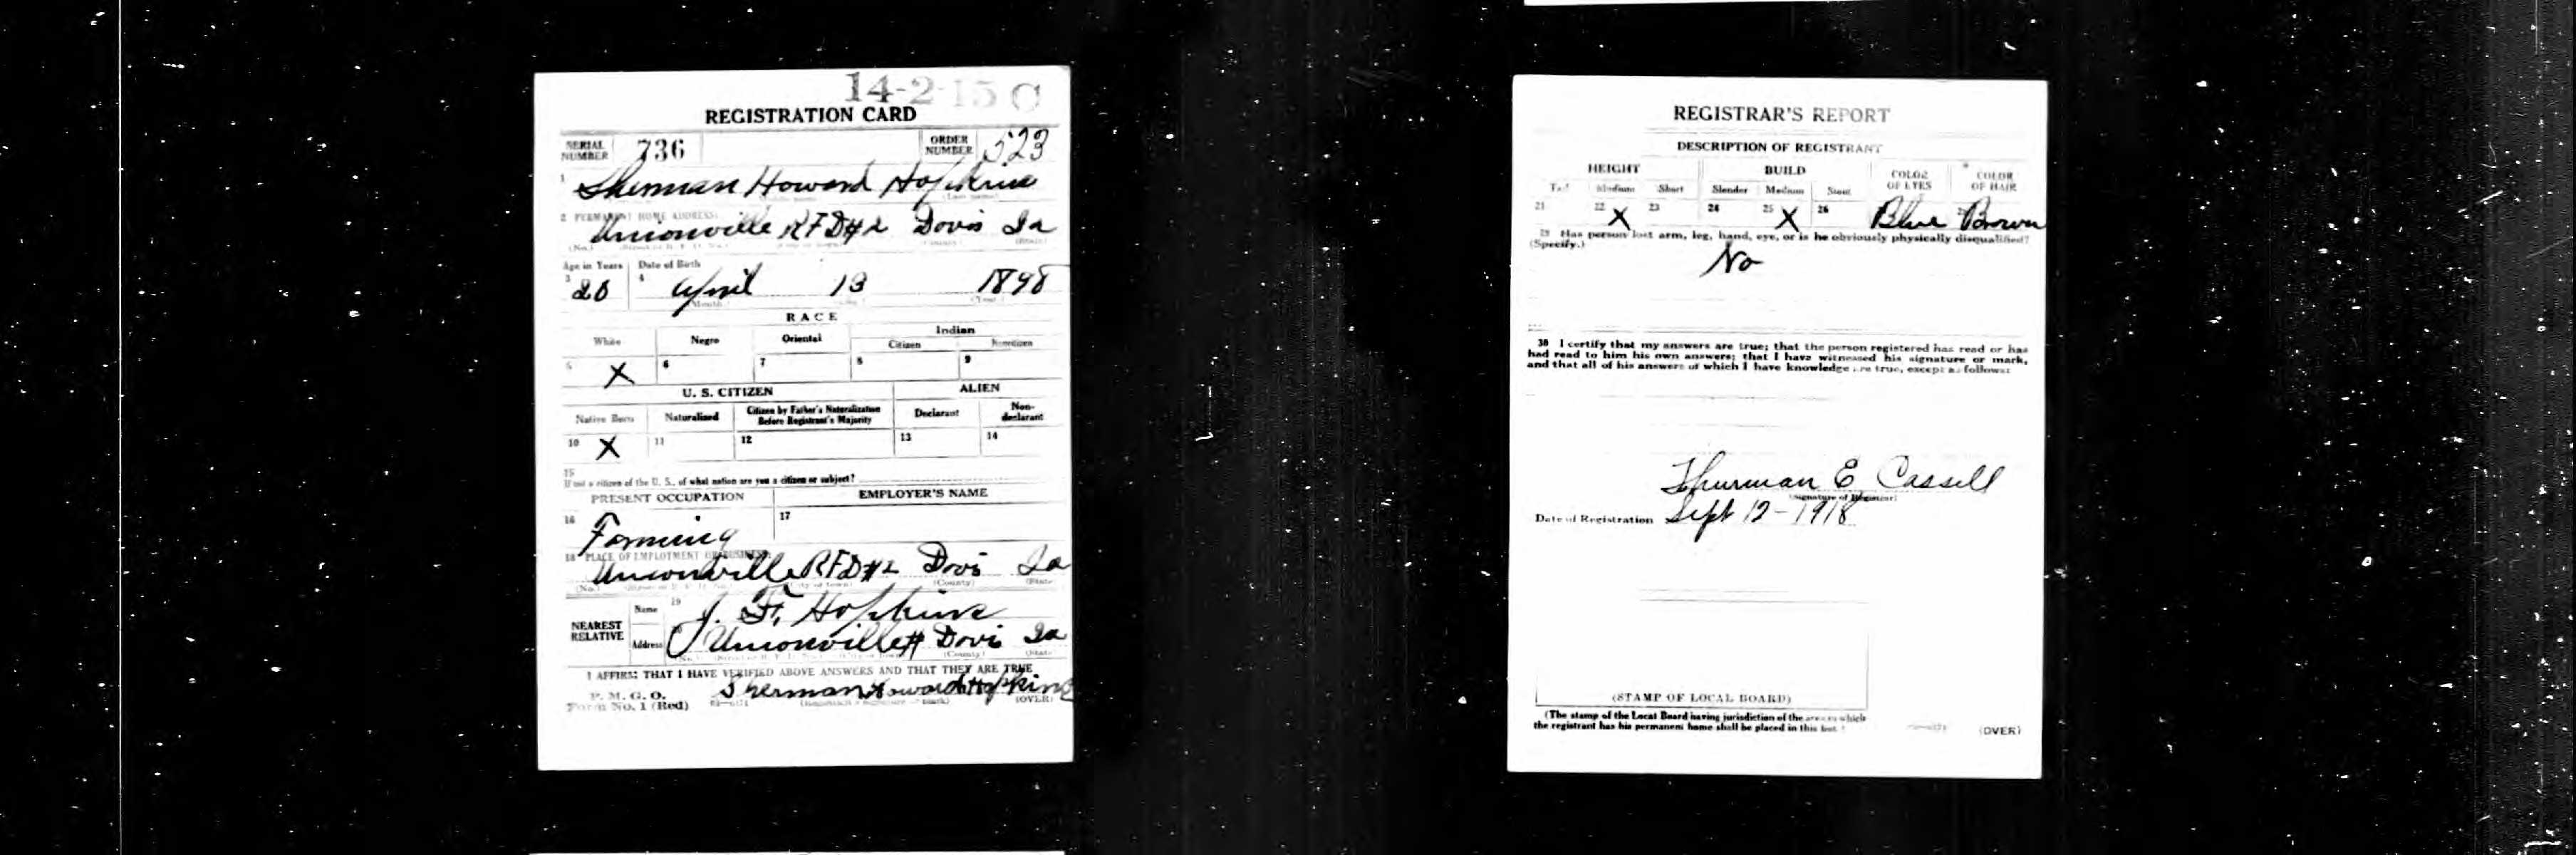 14-2-15 C
REGISTRATION CARD
SERIAL NUMBER 736 ORDER NUMBER 523
1 Sherman Howard Hopkins
(Last name)
2 PERMANENT HOME ADDRESS:
Unionville RFD#2 Davis Ia
(No.) (County) (State)
Age in Years Date of Birth
3 20 4 April 13 1898
(Month) (Day) (Year)
RACE
White Negro Oriental Indian
Citizen Noncitizen
5 X 6 7 8 9
U. S. CITIZEN ALIEN
Native Born Naturalized Citizen by Father's Naturalization Before Registrant's Majority Declarant Non-declarant
10 X 11 12 13 14
15
If not a citizen of the U. S., of what nation are you a citizen or subject?
PRESENT OCCUPATION EMPLOYER'S NAME
16 Farming 17
18 PLACE OF EMPLOYMENT OR BUSINESS:
Unionville RFD#2 Davis Ia
(No.) (City or town) (County) (State)
NEAREST RELATIVE Name 19 J. F. Hopkins
Address Unionville # Davi Ia
(No.) (County) (State)
I AFFIRM THAT I HAVE VERIFIED ABOVE ANSWERS AND THAT THEY ARE TRUE
P. M. G. O.
Form No. 1 (Red) Sherman Howard Hopkins
(Registrant's signature or mark) (OVER)
REGISTRAR'S REPORT
DESCRIPTION OF REGISTRANT
HEIGHT BUILD COLOR OF EYES COLOR OF HAIR
Tall Medium Short Slender Medium Stout
21 22 X 23 24 25 X 26 Blue Brown
29 Has person lost arm, leg, hand, eye, or is he obviously physically disqualified?
(Specify.)
No
30 I certify that my answers are true; that the person registered has read or has
had read to him his own answers; that I have witnessed his signature or mark,
and that all of his answers of which I have knowledge are true, except as follows:
Thurman E Cassell
(Signature of Registrar)
Date of Registration Sept 12-1918
(STAMP OF LOCAL BOARD)
(The stamp of the Local Board having jurisdiction of the area in which
the registrant has his permanent home shall be placed in this box.)
(OVER)